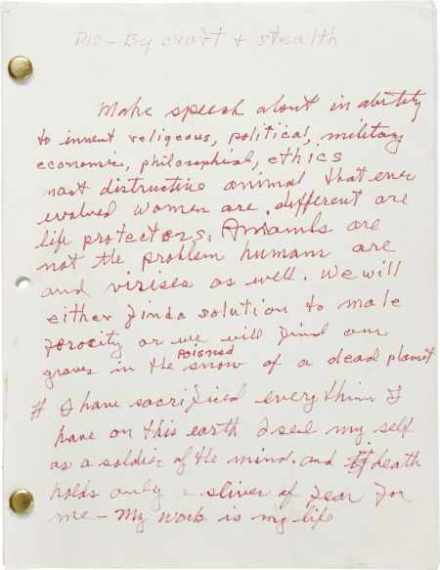 By craft + stealth
Make speech about inability
to invent religeous, political, military
economic, philosophical, ethics
most distructive animal that ever
evolved women are different are
life protectors. Animals are
not the problem humans are
and virises as well. We will
either find a solution to male
ferocity or we will find our
graves in the poisned snow of a dead planet
# I have sacrificed everything I
have on this earth I see my self
as a soldier of the mind. and if death
holds only a sliver of fear for
me - My work is my life